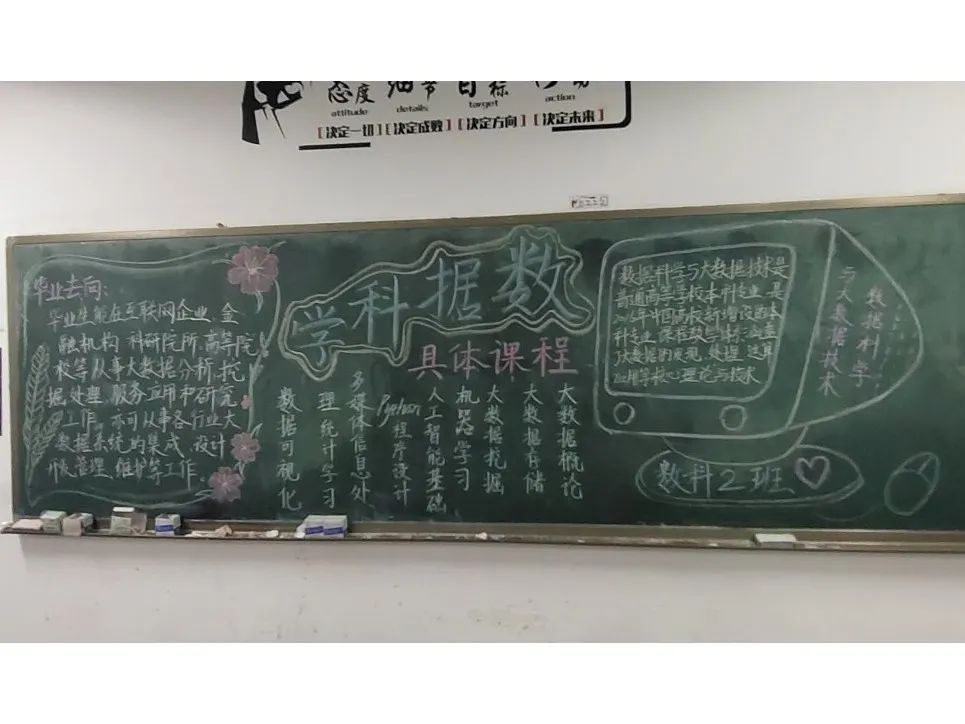 态度 细节 目标
attitude details target action
[决定一切] [决定成败] [决定方向] [决定未来]
毕业去向:
毕业生能在互联网企业、金
融机构、科研院所、高等院
校等从事大数据分析、挖
掘、处理、服务、应用和研究
工作。亦可从事各行业大
数据系统的集成、设计
开发、管理、维护等工作。
学科据数
具体课程
大数据概论
大数据存储
大数据挖掘
机器学习
人工智能基础
Python程序设计
多媒体信息处
理统计学习
数据可视化
数据科学与大数据技术是
普通高等学校本科专业,是
2016年中国高校新增设的本
科专业。课程教学体系涵盖
了大数据的发现、处理、运算
应用等核心理论与技术
数据科学
与大数据技术
数科2班